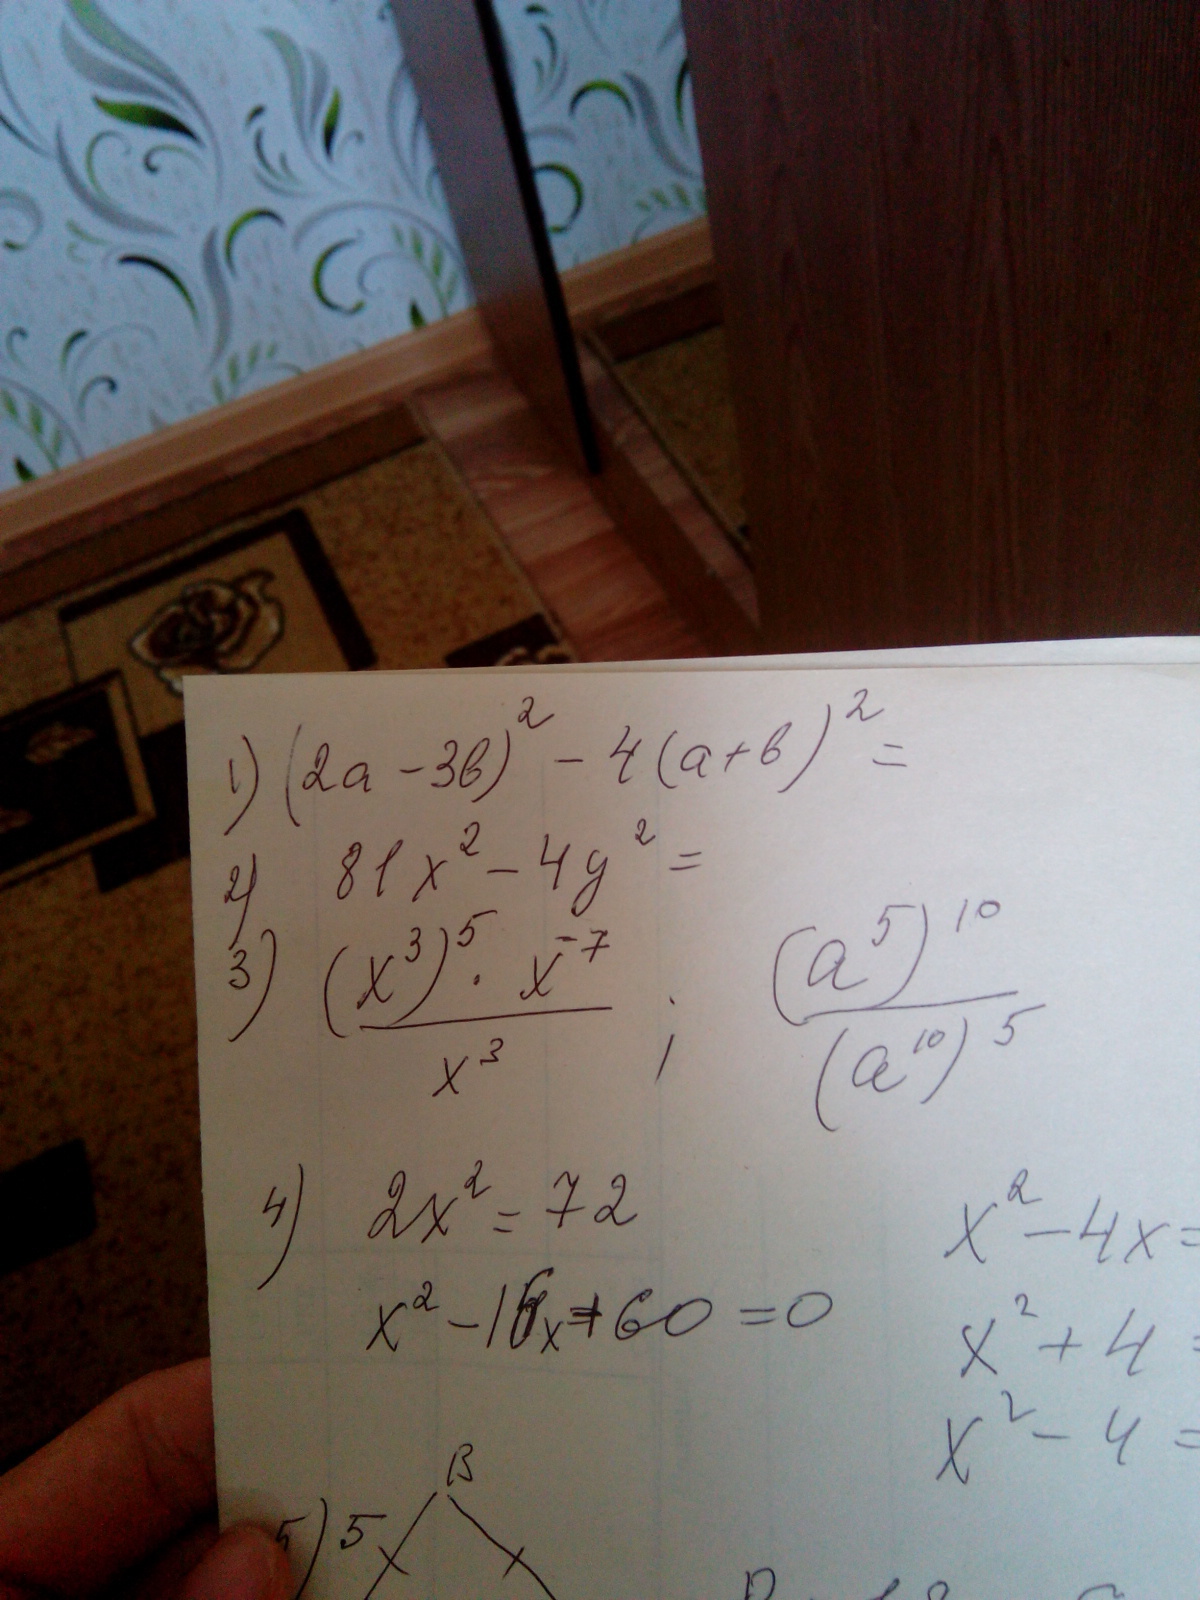 1) (2a - 3b)² - 4(a+b)² =
2) 81x² - 4y² =
3) (x³)⁵ · x⁻⁷ / x³ ; (a⁵)¹⁰ / (a¹⁰)⁵
4) 2x² = 72
x² - 16x + 60 = 0
x² - 4x =
x² + 4 =
x² - 4 =
B
5) 5